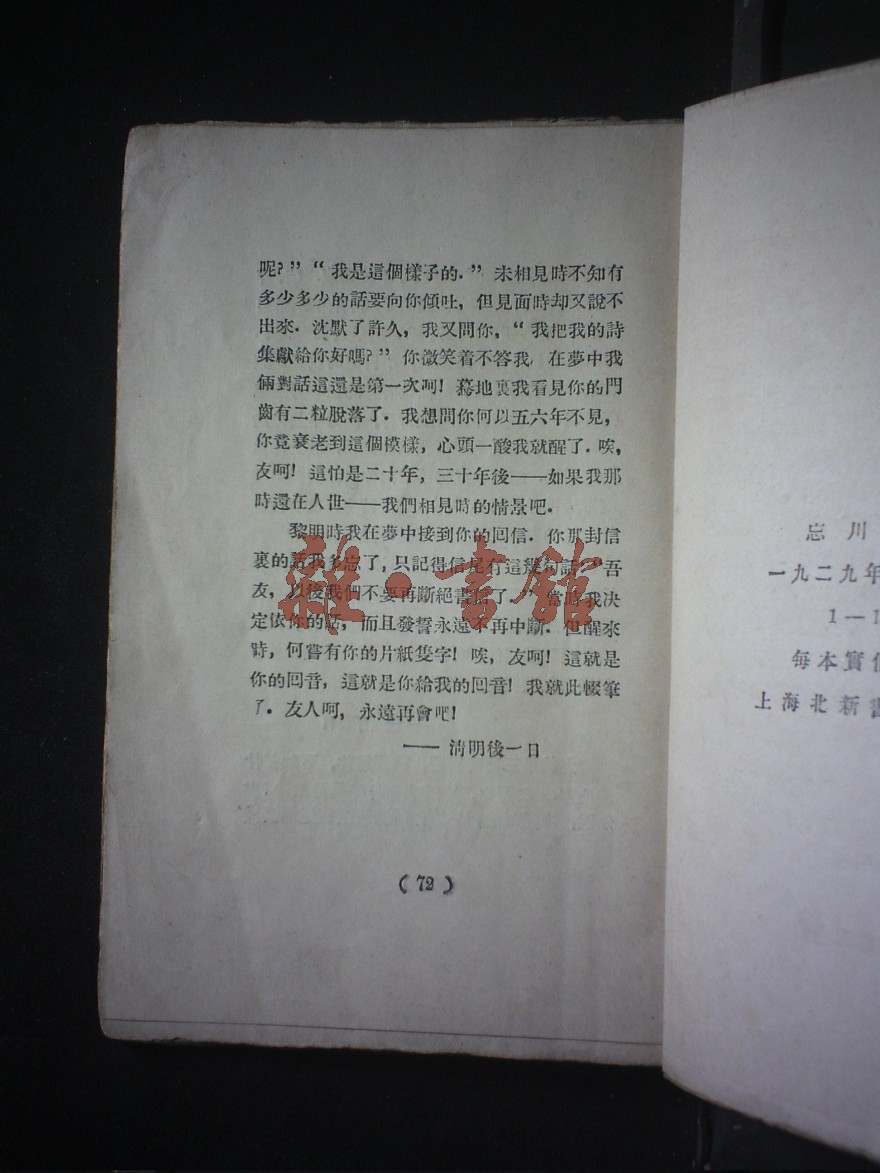 呢？”“我是這個樣子的．”未相見時不知有
多少多少的話要向你傾吐，但見面時却又說不
出來．沈默了許久，我又問你，“我把我的詩
集獻給你好嗎？”你微笑着不答我，在夢中我
倆對話這還是第一次呵！驀地裏我看見你的門
齒有二粒脫落了．我想問你何以五六年不見，
你竟衰老到這個模樣，心頭一酸我就醒了．唉，
友呵！這怕是二十年，三十年後——如果我那
時還在人世——我們相見時的情景吧．
黎明時我在夢中接到你的回信．你那封信
裏的話我多忘了，只記得信尾有這幾句話：“吾
友，以後我們不要再斷絕書信了．”當時我決
定依你的話，而且發誓永遠不再中斷．但醒來
時，何嘗有你的片紙隻字！唉，友呵！這就是
你的回音，這就是你給我的回音！我就此輟筆
了．友人呵，永遠再會吧！
——清明後一日
（72）
雜·書館
忘川
一九二九年
1—1
每本實價
上海北新書